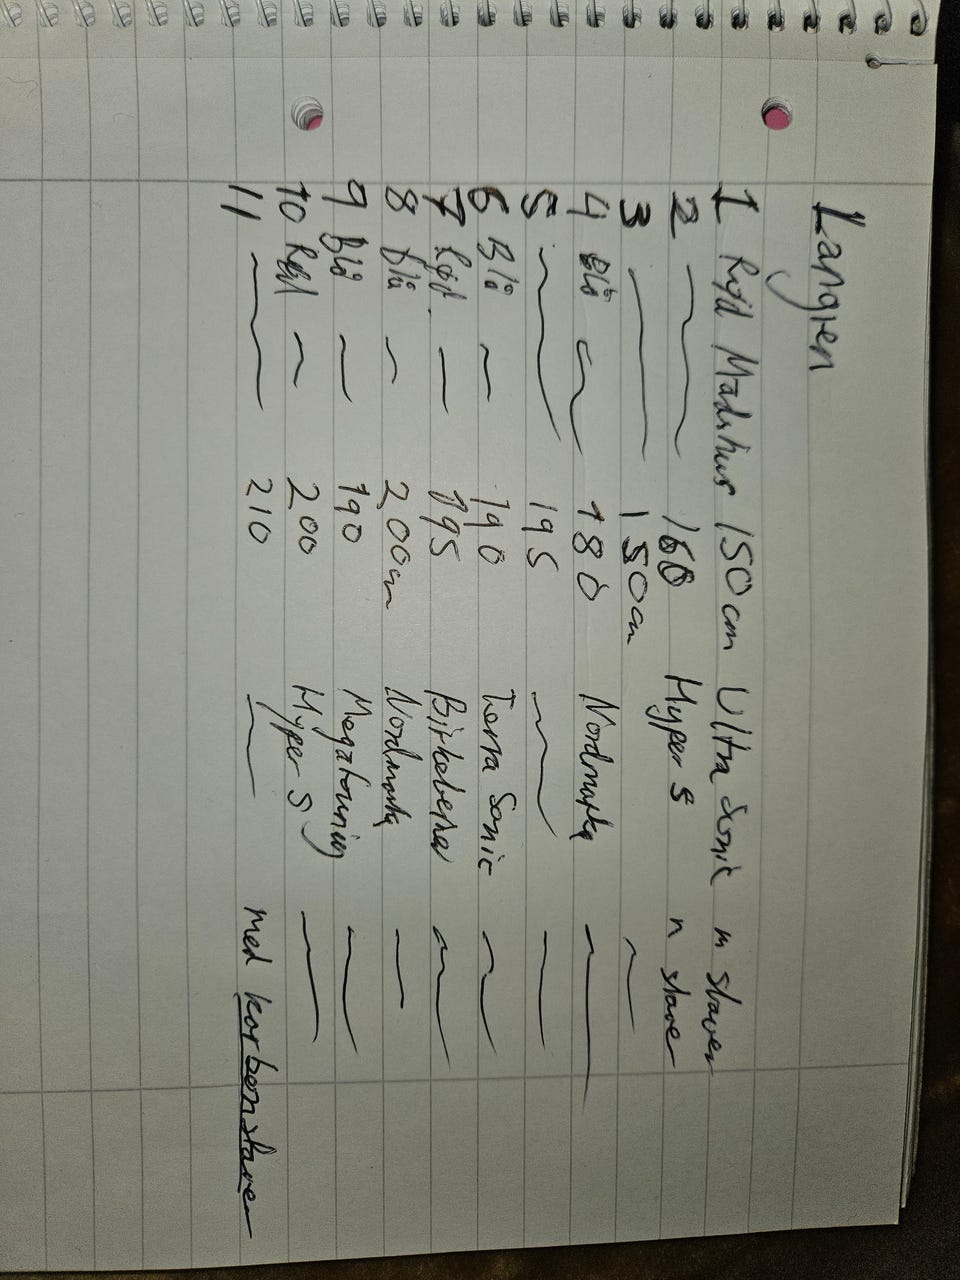 Langren
1 Rød Madshus 150 cm Ultra Sonic m staver
2 ~ 160 Hyper S n staver
3 — 150 cm ~
4 Blå ~ 180 Nordmarka —
5 ~ 195 ~ —
6 Blå ~ 190 Terra Sonic ~
7 Rød. — 195 Birkebeiner ~
8 Blå ~ 200cm Nordmarka —
9 Blå — 190 Megatouring —
10 Rød ~ 200 Hyper S —
11 — 210 — med karbonstaver